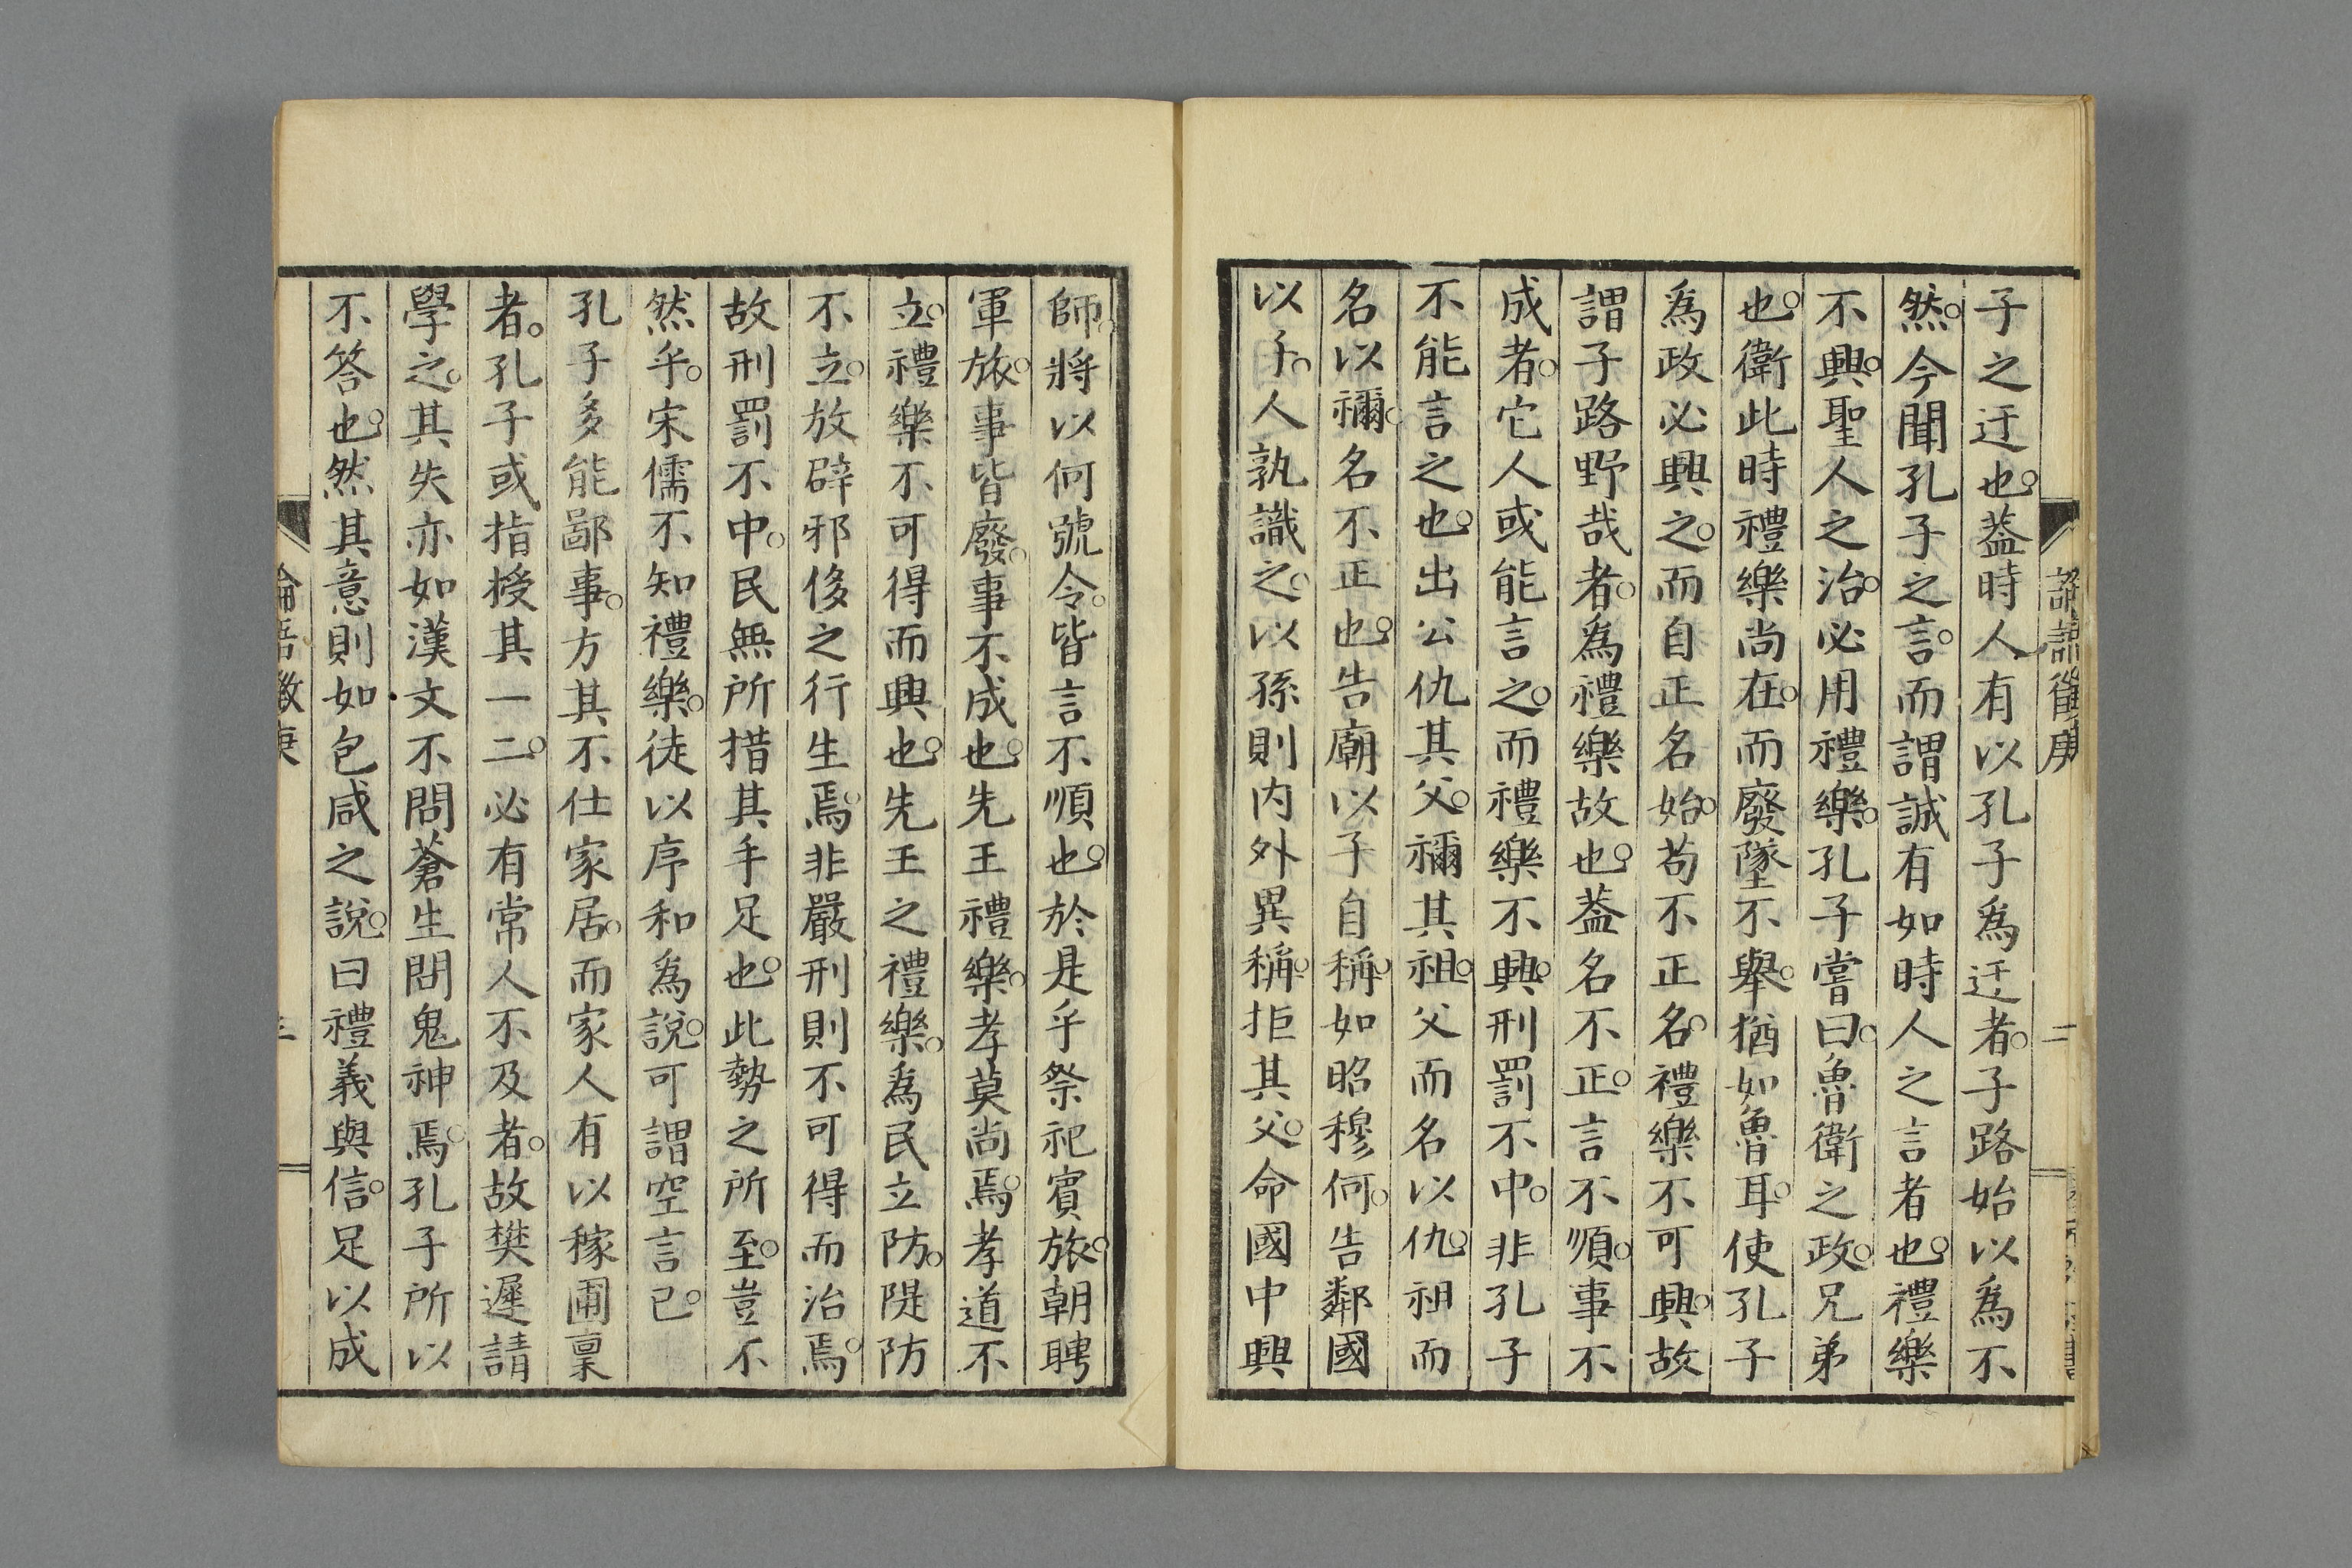 子之迂也。蓋時人有以孔子爲迂者。子路始以爲不
然。今聞孔子之言。而謂誠有如時人之言者也。禮樂
不興。聖人之治。必用禮樂。孔子嘗曰。魯衛之政。兄弟
也。衛此時禮樂尚在。而廢墜不舉。猶如魯耳。使孔子
爲政必興之。而自正名始。苟不正名。禮樂不可興。故
謂子路野哉者。爲禮樂故也。蓋名不正。言不順。事不
成者。它人或能言之。而禮樂不興。刑罰不中。非孔子
不能言之也。出公仇其父。禰其祖。父而名以仇。祖而
名以禰。名不正也。告廟以子自稱。如昭穆何。告鄰國
以子。人孰識之。以孫則内外異稱。拒其父。命國中興
師。將以何號令。皆言不順也。於是乎祭祀賓旅。朝聘
軍旅。事皆廢。事不成也。先王禮樂。孝莫尚焉。孝道不
立。禮樂不可得而興也。先王之禮樂。爲民立防。隄防
不立。放辟邪侈之行生焉。非嚴刑則不可得而治焉。
故刑罰不中。民無所措其手足也。此勢之所至。豈不
然乎。宋儒不知禮樂。徒以序和爲說。可謂空言已。
孔子多能鄙事。方其不仕家居。而家人有以稼圃稟
者。孔子或指授其一二。必有常人不及者。故樊遲請
學之。其失亦如漢文不問蒼生問鬼神焉。孔子所以
不答也。然其意則如包咸之說。曰禮義與信。足以成
論語徴庚